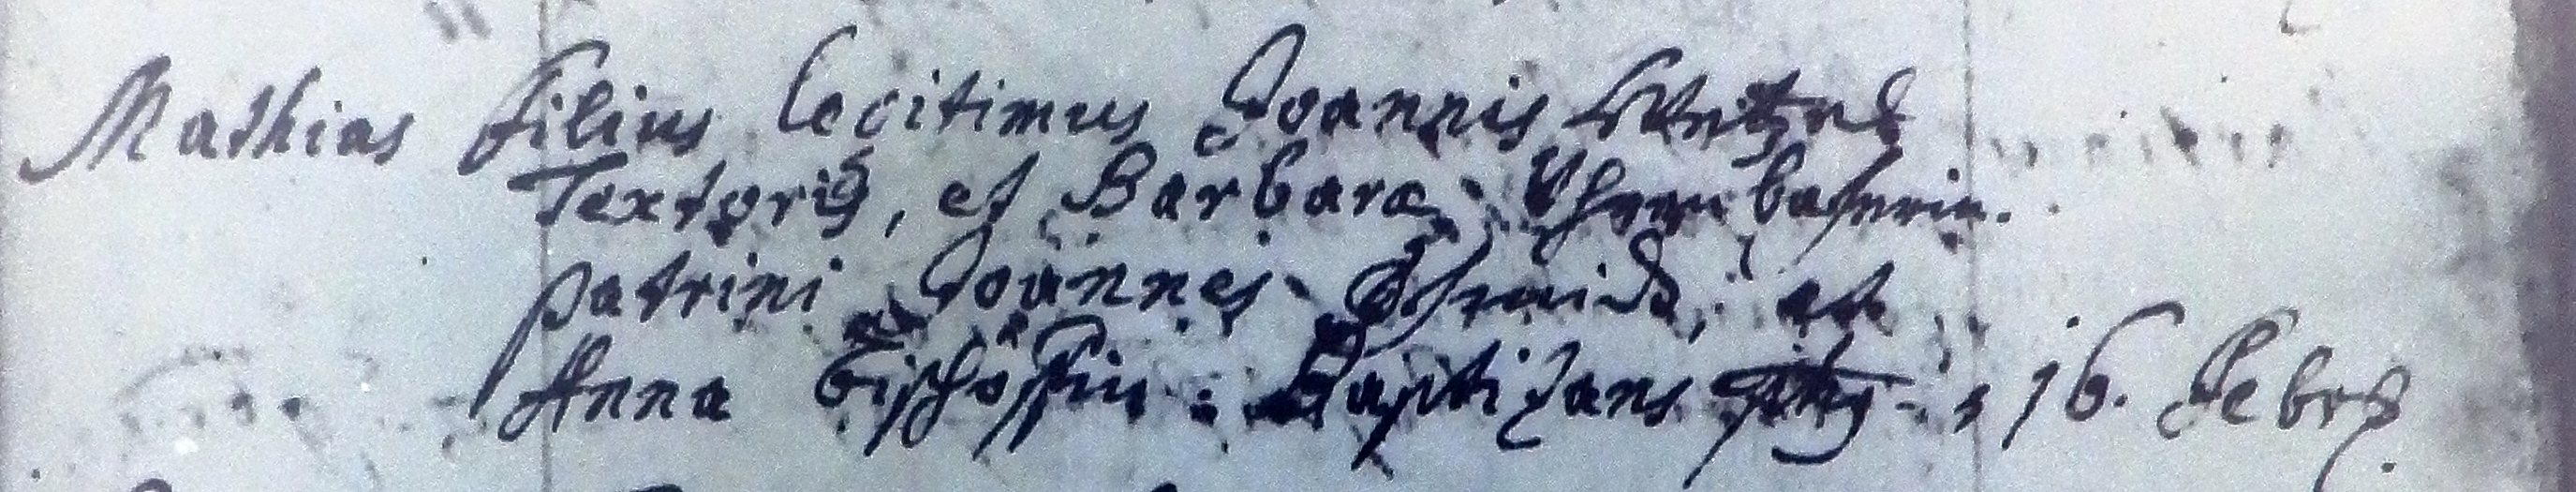 Mathias filius legitimus Joannis
Textoris, et Barbara
patrini Joannes Schmid, et
Anna Bischoffin. Baptizans 16. Febr